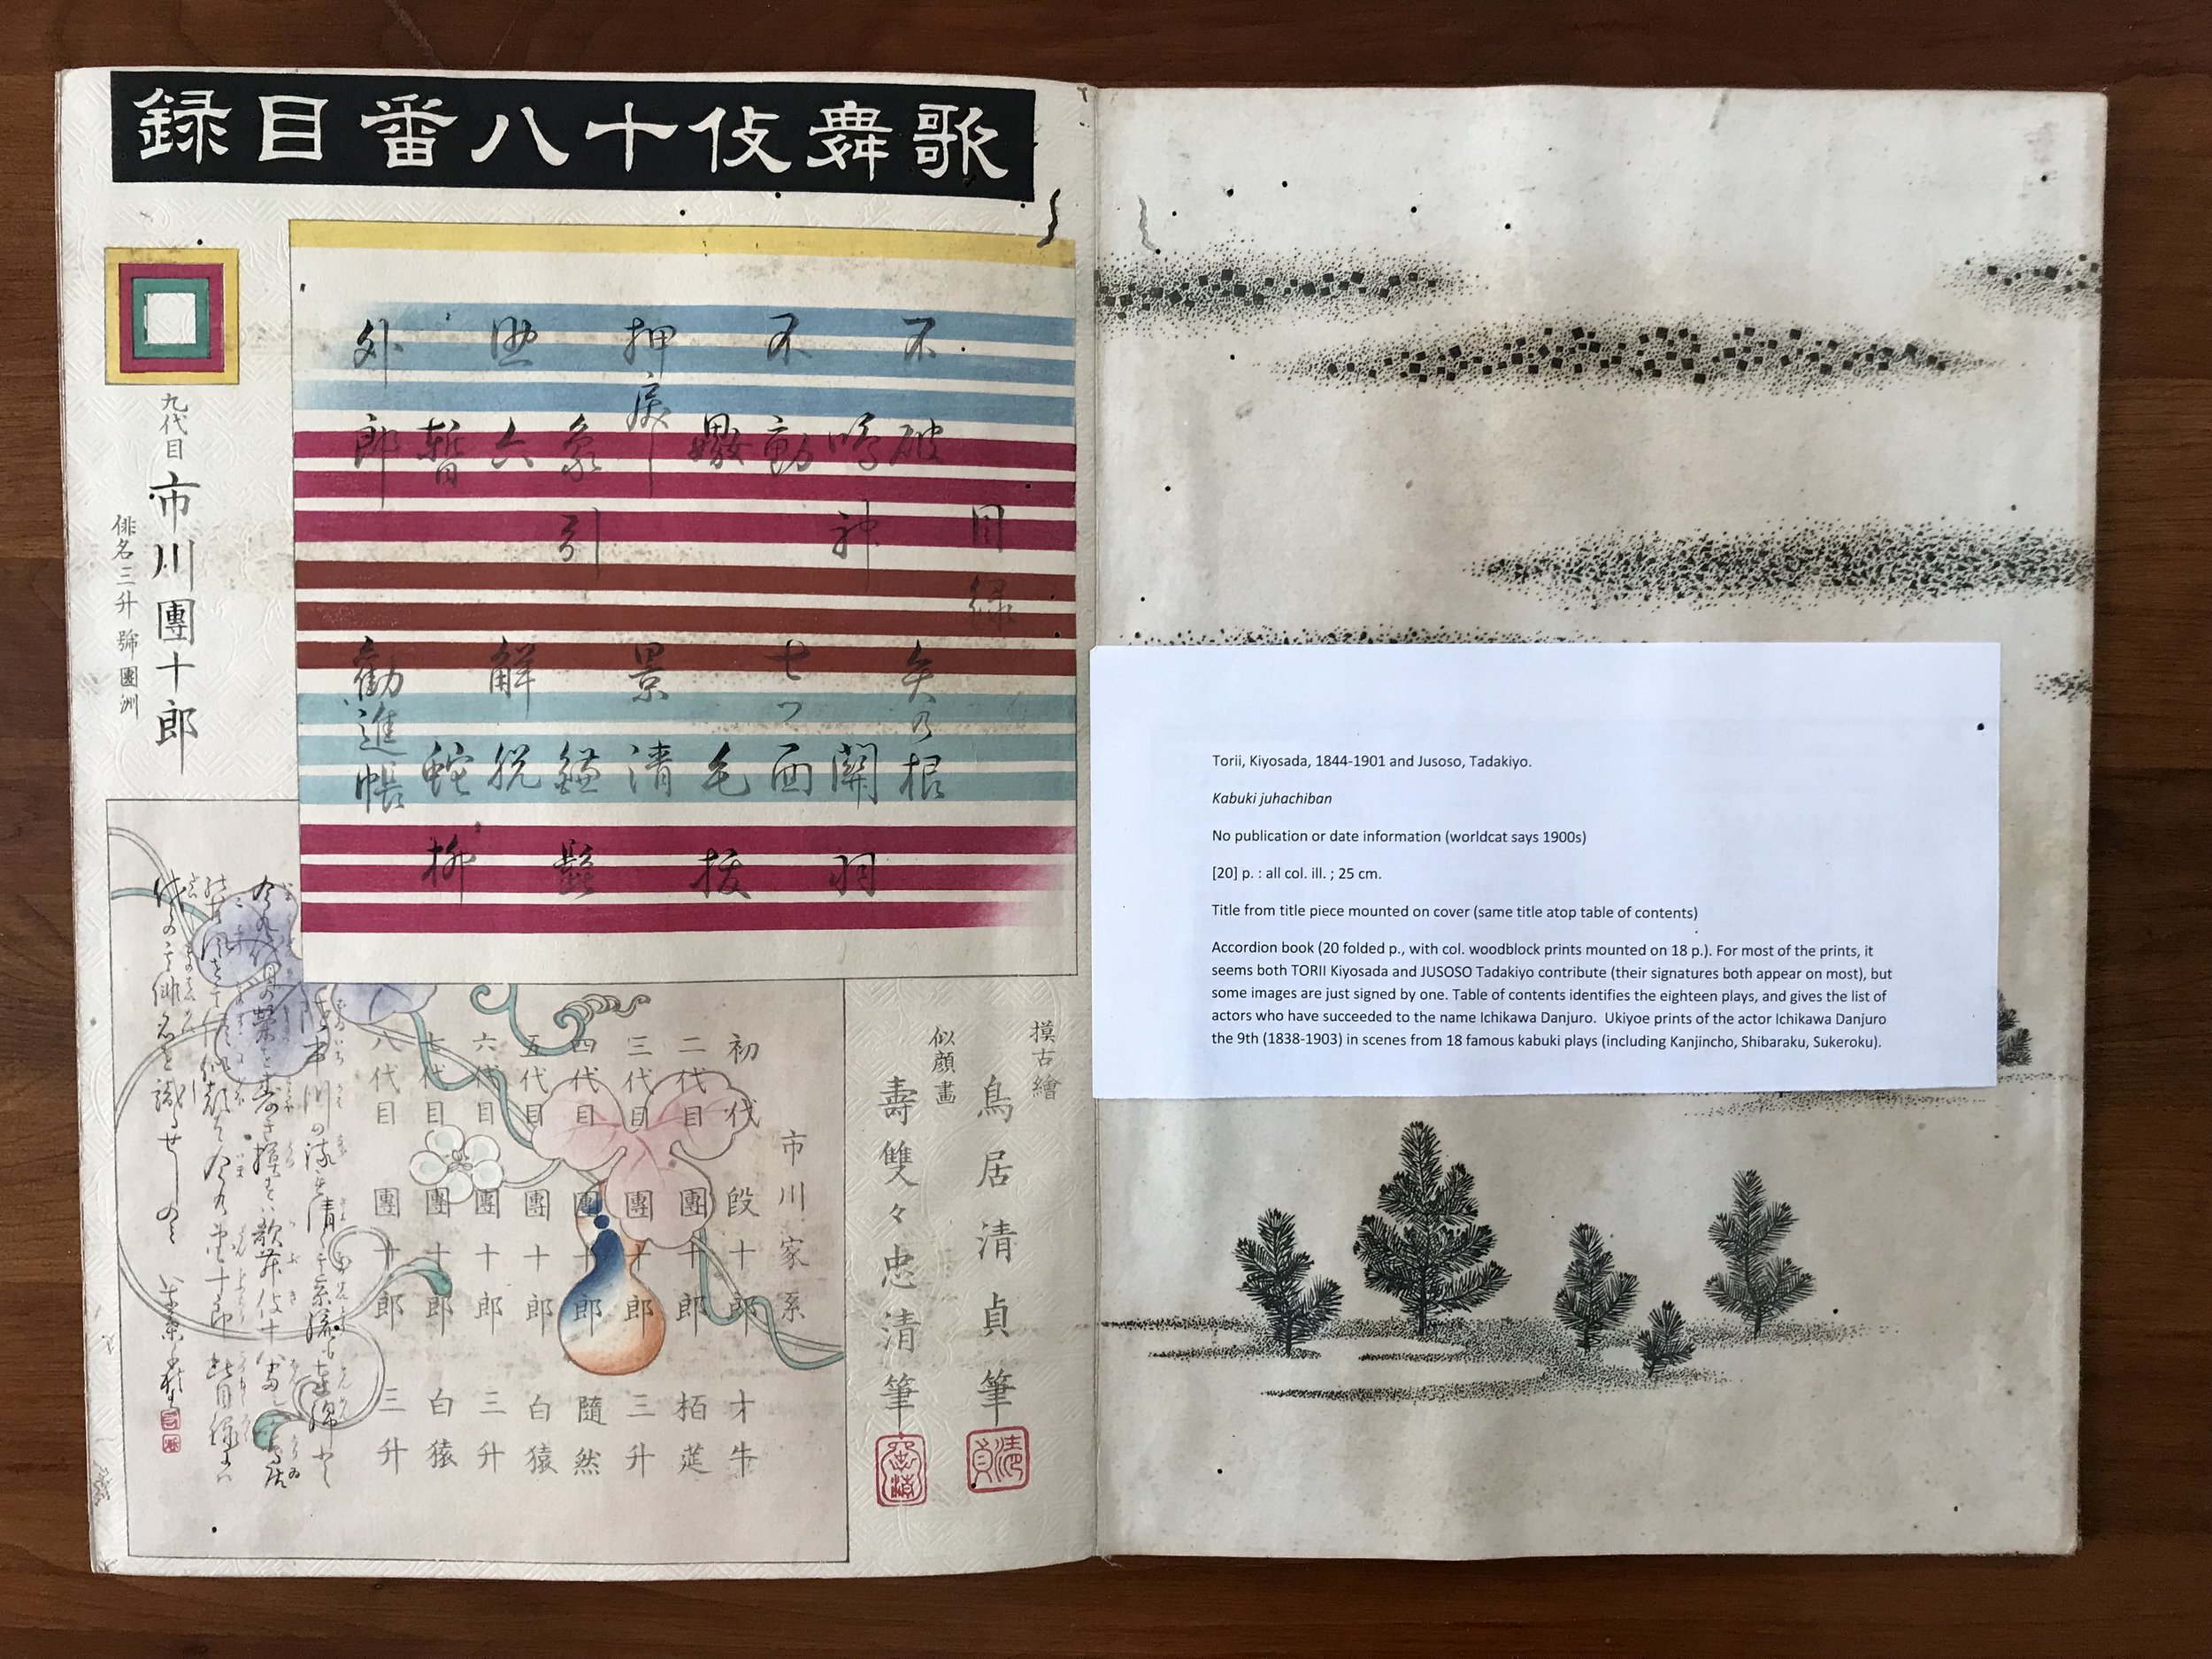 歌舞伎十八番目録
目録
不破
鳴神
不動
嫐
押戻
象引
助六
暫
外郎
矢の根
關羽
七ツ面
毛抜
景清
鎌髭
解脱
蛇柳
勧進帳
九代目 市川團十郎
俳名三升 號團洲
摸古繪
鳥居清貞筆
清貞
似顔畫
壽雙々忠清筆
忠清
市川家系
初代 段十郎 才牛
二代目 團十郎 栢莚
三代目 團十郎 三升
四代目 團十郎 隨然
五代目 團十郎 白猿
六代目 團十郎 三升
七代目 團十郎 白猿
八代目 團十郎 三升
Torii, Kiyosada, 1844-1901 and Jusoso, Tadakiyo.
Kabuki juhachiban
No publication or date information (worldcat says 1900s)
[20] p. : all col. ill. ; 25 cm.
Title from title piece mounted on cover (same title atop table of contents)
Accordion book (20 folded p., with col. woodblock prints mounted on 18 p.). For most of the prints, it
seems both TORII Kiyosada and JUSOSO Tadakiyo contribute (their signatures both appear on most), but
some images are just signed by one. Table of contents identifies the eighteen plays, and gives the list of
actors who have succeeded to the name Ichikawa Danjuro.  Ukiyoe prints of the actor Ichikawa Danjuro
the 9th (1838-1903) in scenes from 18 famous kabuki plays (including Kanjincho, Shibaraku, Sukeroku).